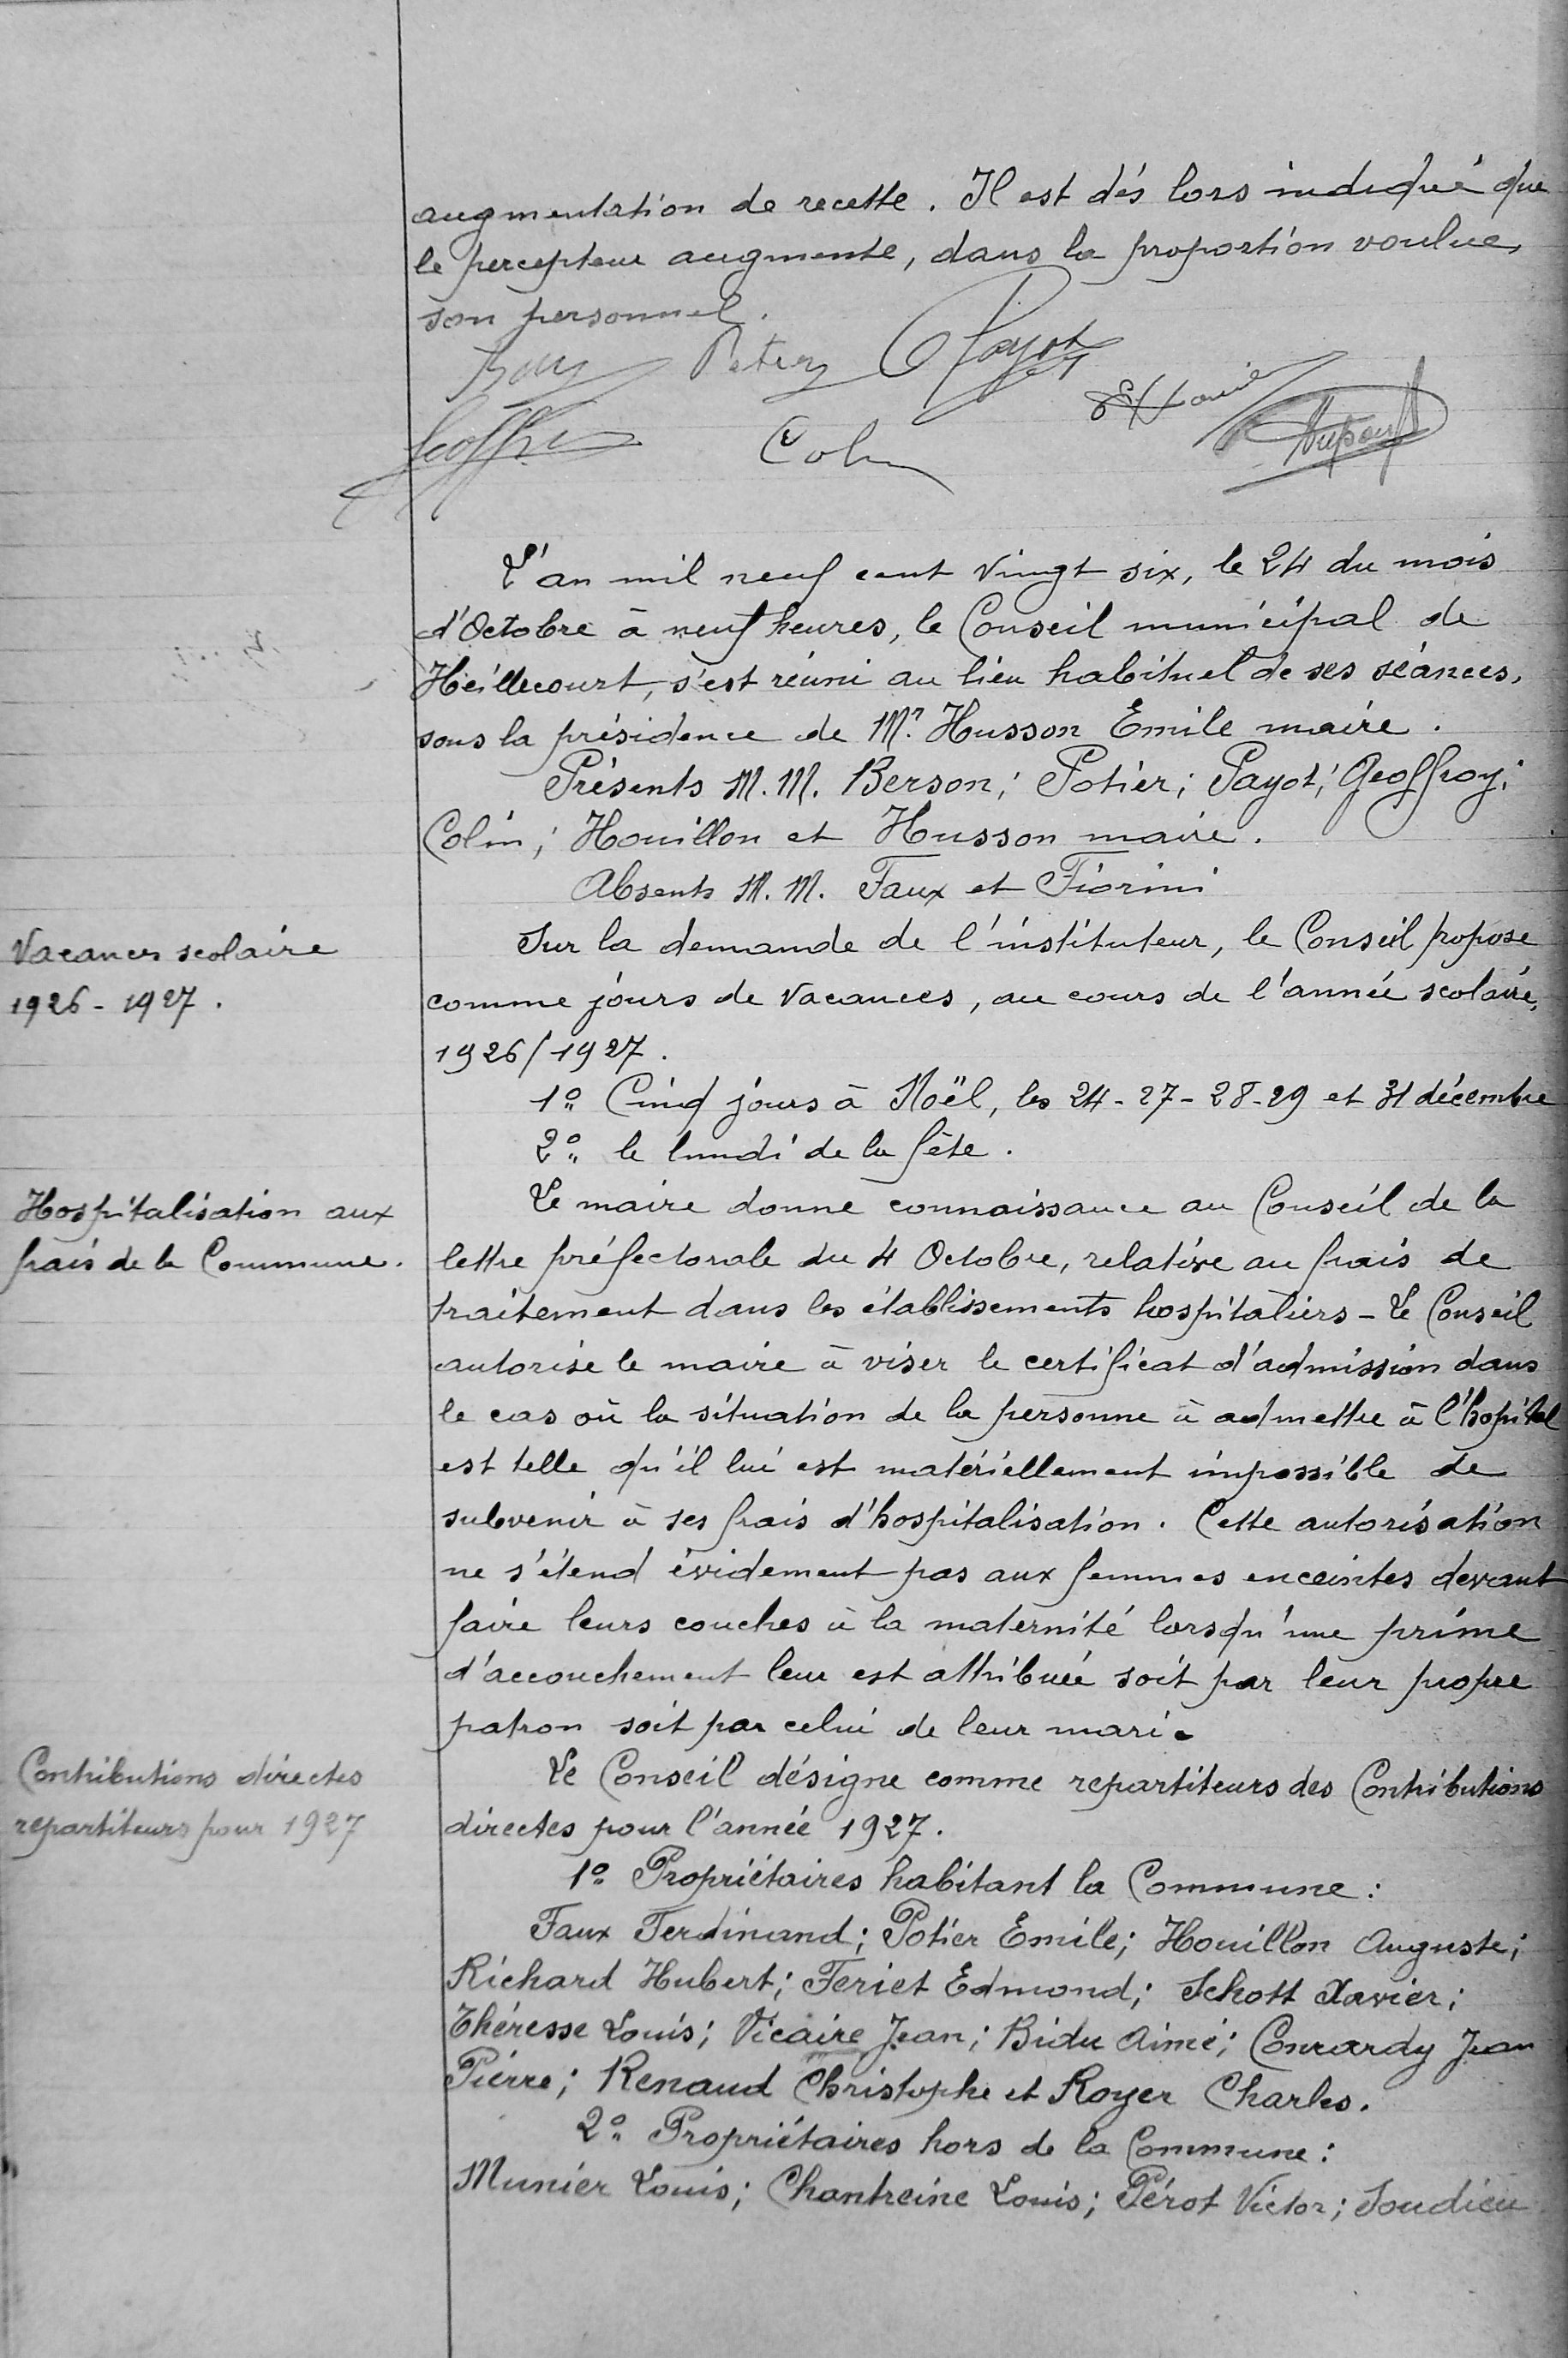 augmentation de recette. Il est dés lors indiqué que
le percepteur augmente, dans la proportion voulue,
son personnel.
Potier Payot
Geoffroy
Colin
L'an mil neuf cent vingt six, le 24 du mois
d'Octobre à neuf heures, le Conseil municipal de
Heillecourt, s'est réuni au lieu habituel de ses séances,
sous la présidence de Mr. Husson Emile maire.
Présents M. M. Berson; Potier; Payot; Geoffroy;
Colin; Houillon et Husson maire.
Absents M. M. Faux et Fiorini
Vacances scolaire
1926 - 1927.
Sur la demande de l'instituteur, le Conseil propose
comme jours de vacances, au cours de l'année scolaire,
1926/1927.
1º Cinq jours à Noël, les 24 - 27 - 28 - 29 et 31 décembre
2º le lundi de la fête.
Hospitalisation aux
frais de la Commune.
Le maire donne connaissance au Conseil de la
lettre préfectorale du 4 Octobre, relative au frais de
traitement dans les établissements hospitaliers - Le Conseil
autorise le maire à viser le certificat d'admission dans
le cas où la situation de la personne à admettre à l'hopital
est telle qu'il lui est matériellement impossible de
subvenir à ses frais d'hospitalisation. Cette autorisation
ne s'étend évidement pas aux femmes enceintes devant
faire leurs couches à la maternité lorsqu'une prime
d'accouchement leur est attribuée soit par leur propre
patron soit par celui de leur mari.
Contributions directes
repartiteurs pour 1927
Le Conseil désigne comme repartiteurs des Contributions
directes pour l'année 1927.
1º Propriétaires habitant la Commune:
Faux Ferdinand; Potier Emile; Houillon Auguste;
Richard Hubert; Feriet Edmond; Schott Xavier;
Théresse Louis; Vicaire Jean; Bidu Aimé; Conrardy Jean
Pierre; Renaud Christophe et Royer Charles.
2º Propriétaires hors de la Commune:
Munier Louis; Chantreine Louis; Pérot Victor; Soudieu